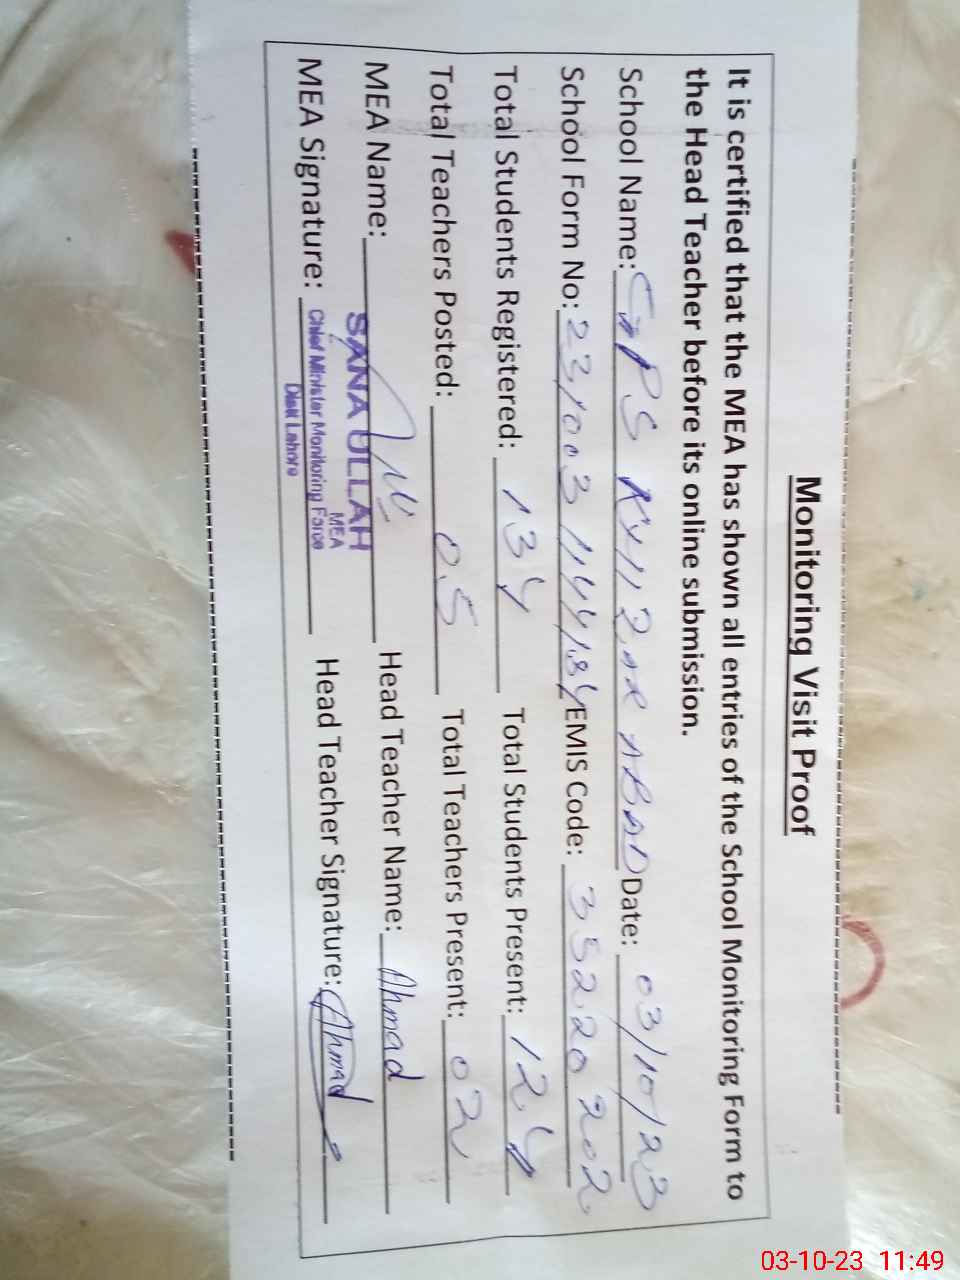 Monitoring Visit Proof
It is certified that the MEA has shown all entries of the School Monitoring Form to
the Head Teacher before its online submission.
School Name: GPS ABAD Date: 03/10/23
School Form No: EMIS Code: 35220202
Total Students Registered: 134 Total Students Present: 124
Total Teachers Posted: 05 Total Teachers Present: 02
MEA Name: Head Teacher Name: Ahmad
SANA ULLAH
MEA
MEA Signature: Head Teacher Signature: Ahmad
Chief Minister Monitoring Force
Distt Lahore
03-10-23 11:49